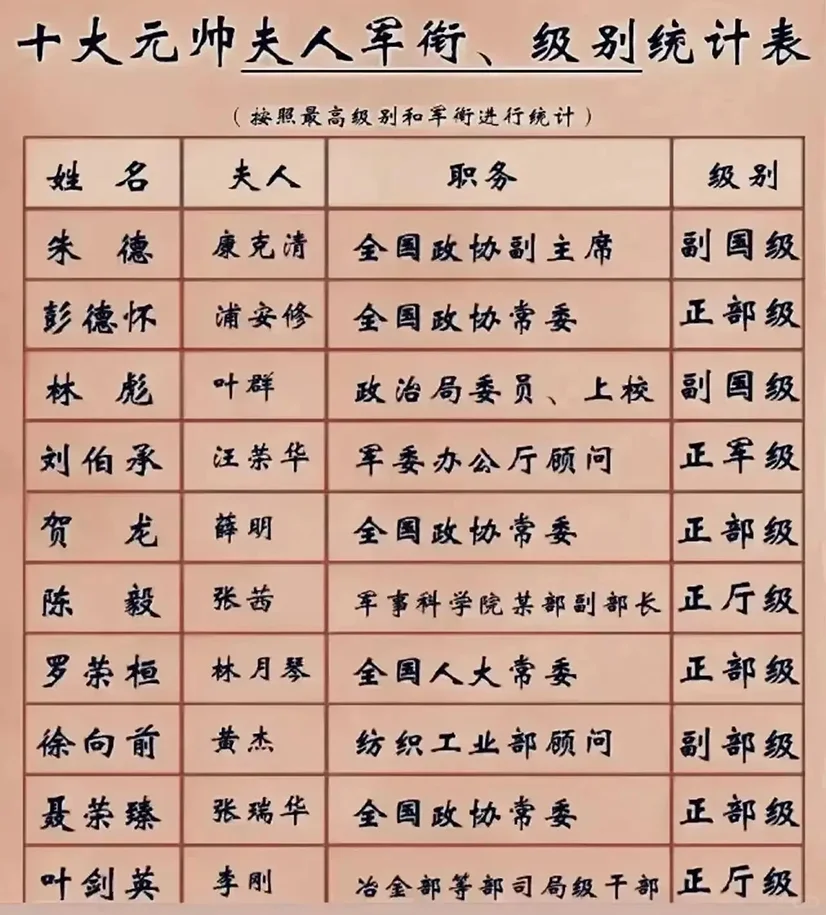 十大元帅夫人军衔、级别统计表
（按照最高级别和军衔进行统计）
姓名 夫人 职务 级别
朱德 康克清 全国政协副主席 副国级
彭德怀 浦安修 全国政协常委 正部级
林彪 叶群 政治局委员、上校 副国级
刘伯承 汪荣华 军委办公厅顾问 正军级
贺龙 薛明 全国政协常委 正部级
陈毅 张茜 军事科学院某部副部长 正厅级
罗荣桓 林月琴 全国人大常委 正部级
徐向前 黄杰 纺织工业部顾问 副部级
聂荣臻 张瑞华 全国政协常委 正部级
叶剑英 李刚 冶金部等部司局级干部 正厅级